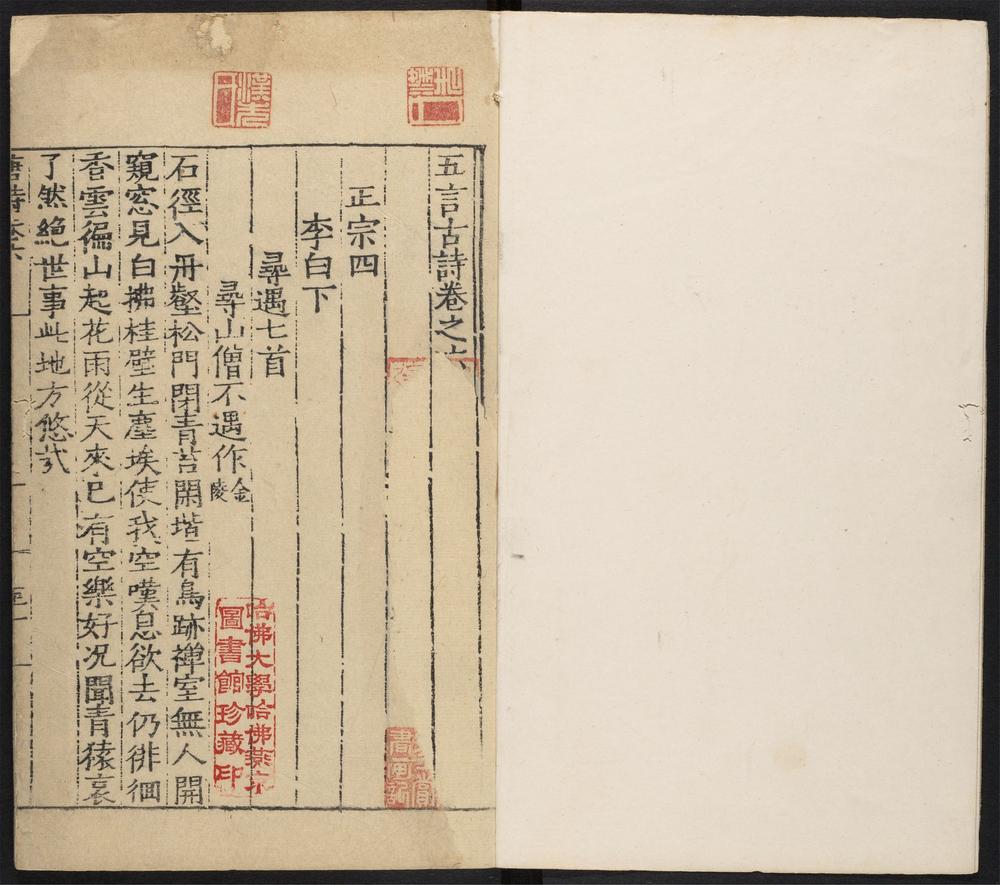 五言古詩卷之六
正宗四
李白下
尋遇七首
尋山僧不遇作金陵
石徑入丹壑松門閉青苔閑堦有鳥跡禪室無人開
窺窓見白拂桂壁生塵埃使我空嘆息欲去仍徘徊
香雲徧山起花雨從天來已有空樂好况聞青猿哀
了然絶世事此地方悠哉
唐詩卷六
哈佛大學哈佛燕京
圖書館珍藏印